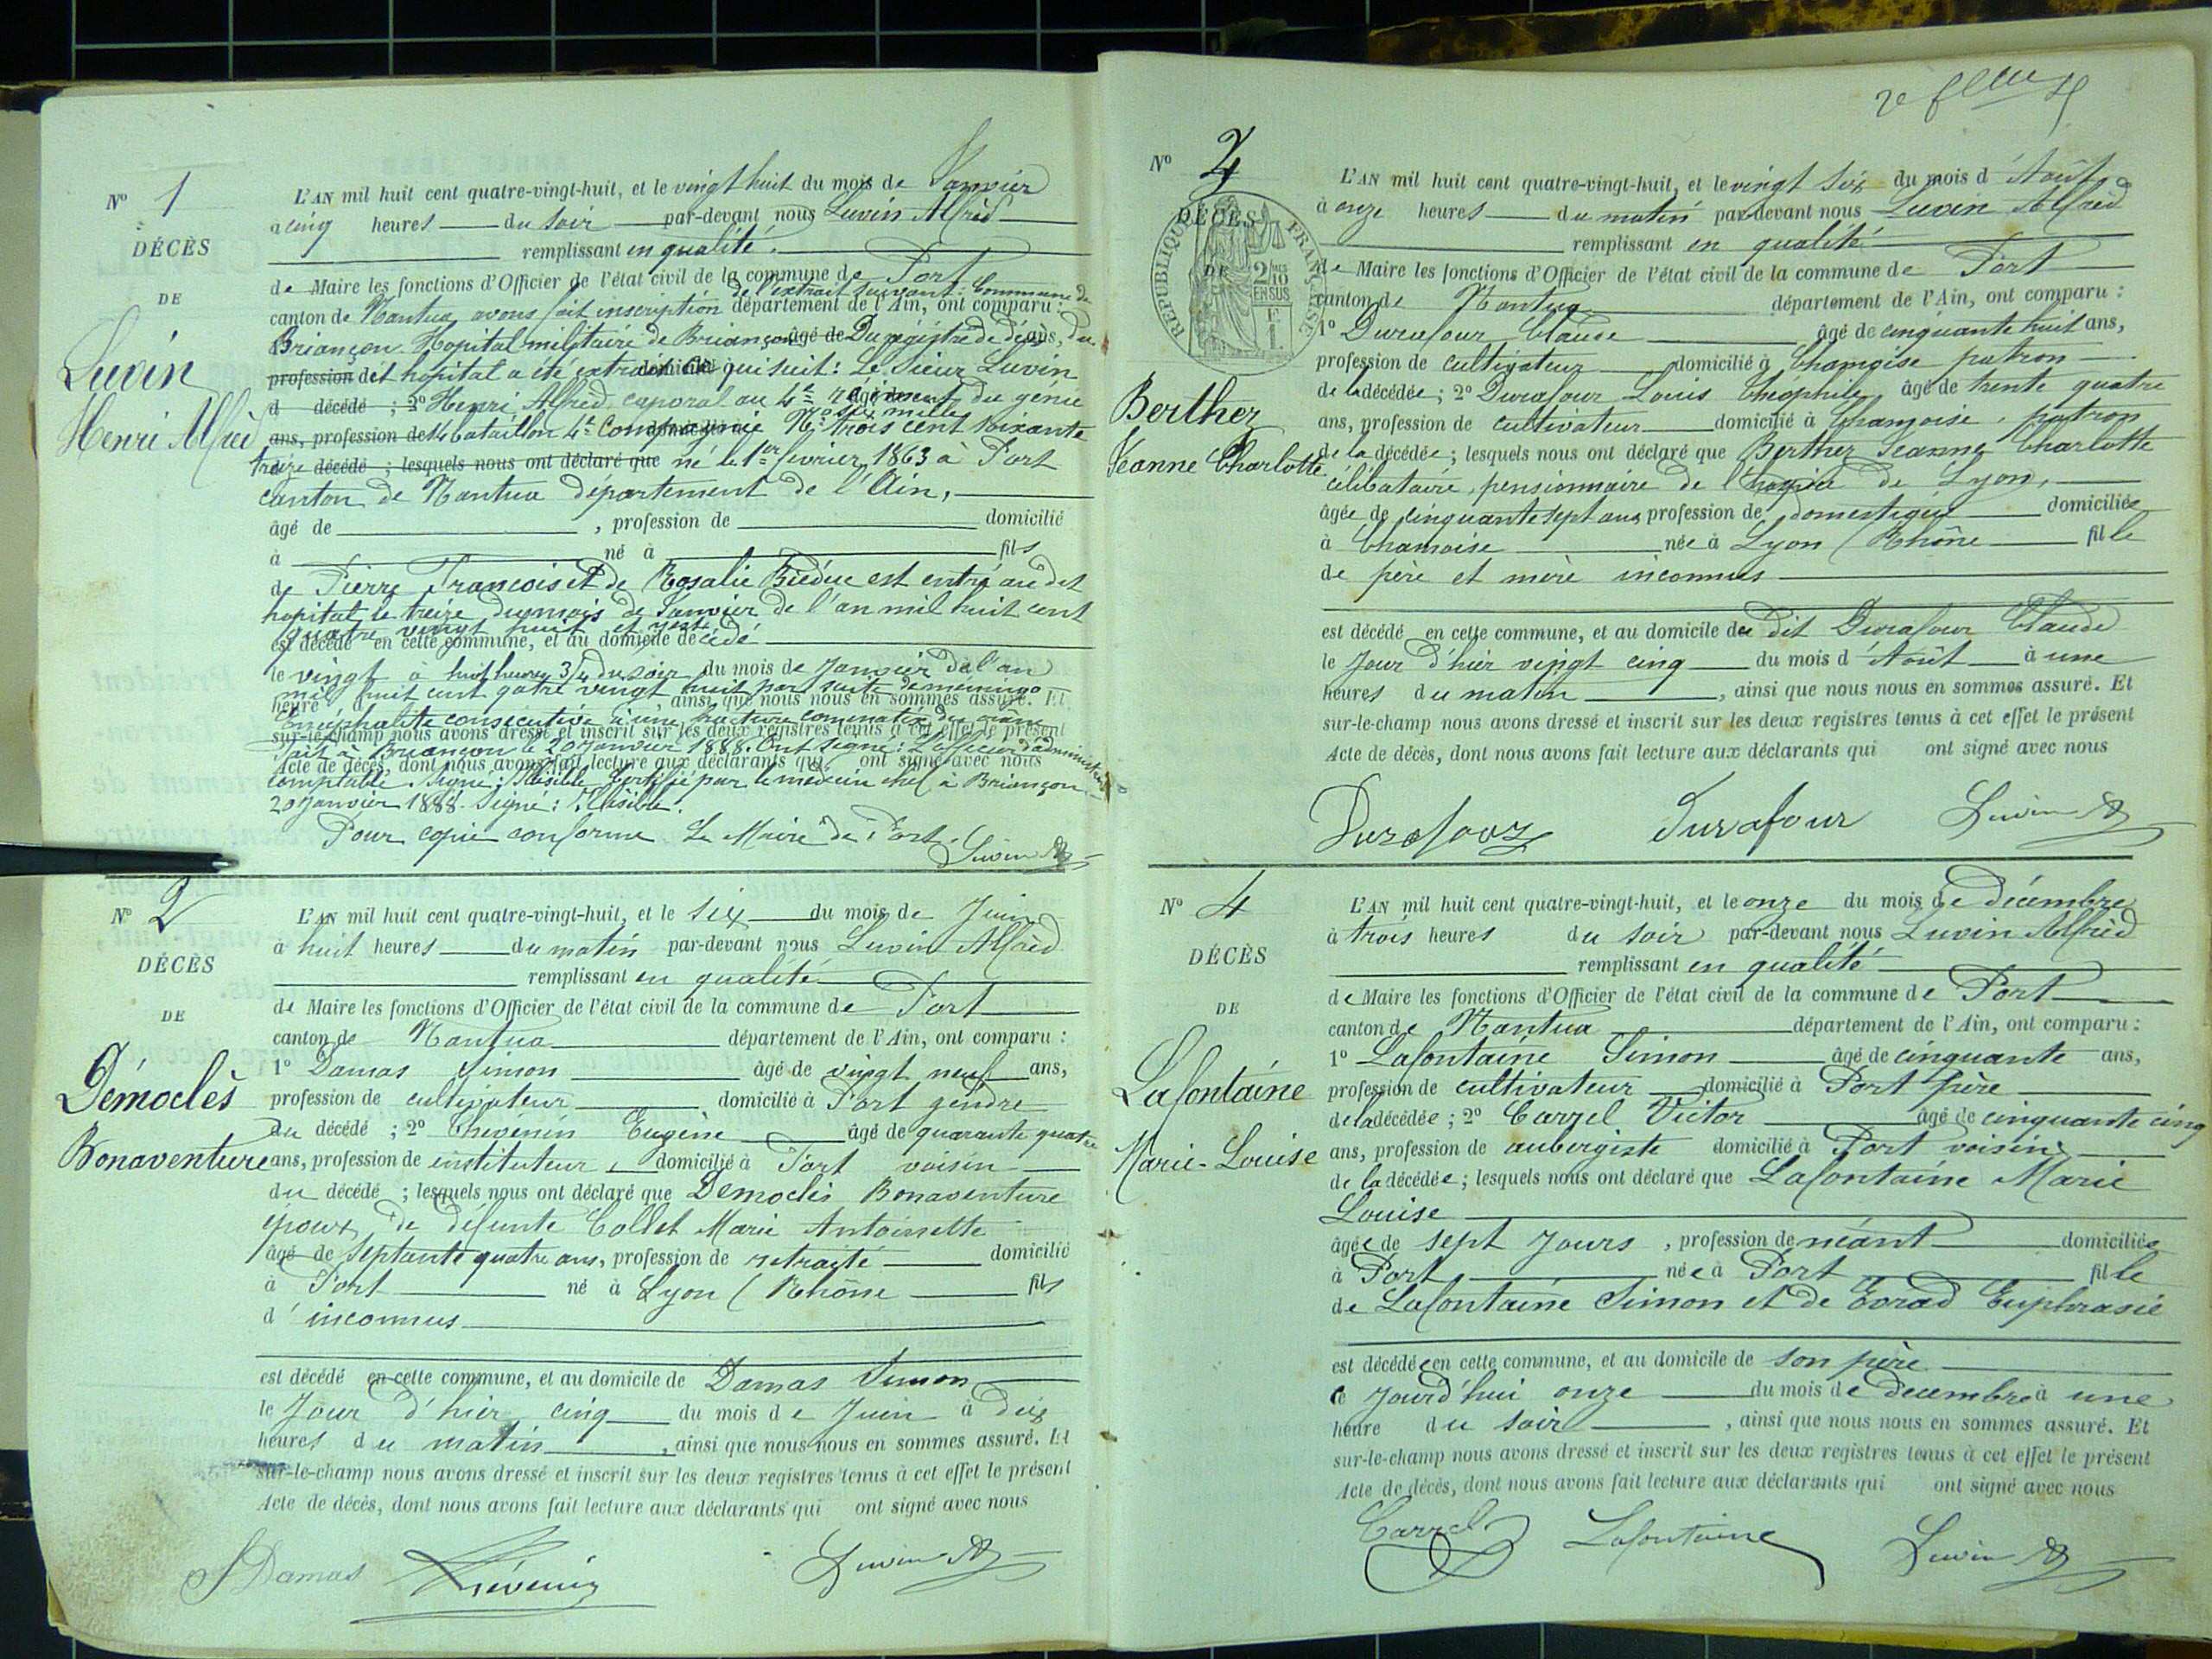 N° 1
DÉCÈS
DE
Luvin
Henri Alfred
L'AN mil huit cent quatre-vingt-huit, et le vingt huit du mois de Janvier
à cinq heures du soir par-devant nous Luvin Alfred
remplissant en qualité
de Maire les fonctions d'Officier de l'état civil de la commune de Port
de l'extrait suivant : Commune de
canton de Nantua avons fait inscription département de l'Ain, ont comparu :
Briançon. Hopital militaire de Briançon âgé de Du régistre de décès, du
profession dét hopital a été extrait domicilié qui suit : Le Sieur Luvin
d décédé ; 2° Henri Alfred caporal au 4e régiment du génie
six mille
ans, profession de bataillon 4e Compagnie N° trois cent soixante
treize décédé ; lesquels nous ont déclaré que né le 1er fevrier 1863 à Port
canton de Nantua département de l'Ain,
âgé de , profession de domicilié
à né à fils
de Pierre François et de Rosalie est entré au dit
hopital le treize du mois de Janvier de l'an mil huit cent
quatre vingt huit et y est
est décédé en cette commune, et au domicile de cédé
le vingt à huit heures 3/4 du soir du mois de Janvier de l'an
mil huit cent qatre vingt huit par suite de meningo
heure d , ainsi que nous nous en sommes assuré. Et
Encéphalite consecutive à une fracture du crâne
sur-le-champ nous avons dressé et inscrit sur les deux registres tenus à cet effet le présent
Fait à Briançon le 20 Janvier 1888. Ont signé : L'officier d'administration
Acte de décès, dont nous avons fait lecture aux déclarants qui ont signé avec nous
comptable. Signé : Illisible. Certifié par le médecin chef à Briançon
20 Janvier 1888. Signé : Illisible.
Pour copie conforme Le Maire de Port
Luvin A
N° 2
DÉCÈS
DE
Démoclès
Bonaventure
L'AN mil huit cent quatre-vingt-huit, et le six du mois de Juin
à huit heures du matin par-devant nous Luvin Alfred
remplissant en qualité
de Maire les fonctions d'Officier de l'état civil de la commune de Port
canton de Nantua département de l'Ain, ont comparu :
1° Damas Simon âgé de vingt neuf ans,
profession de cultivateur domicilié à Port gendre
du décédé ; 2° Thévenin Eugène âgé de quarante quatre
ans, profession de instituteur, domicilié à Port voisin
du décédé ; lesquels nous ont déclaré que Démoclès Bonaventure
époux de défunte Collet Marie Antoinette
âgé de septante quatre ans, profession de retraité domicilié
à Port né à Lyon (Rhône fils
d'inconnus
est décédé en cette commune, et au domicile de Damas Simon
le Jour d'hier cinq du mois de Juin à dix
heures du matin , ainsi que nous nous en sommes assuré. Et
sur-le-champ nous avons dressé et inscrit sur les deux registres tenus à cet effet le présent
Acte de décès, dont nous avons fait lecture aux déclarants qui ont signé avec nous
S Damas Thévenin Luvin A
2e
N° 3
DÉCÈS
DE
RÉPUBLIQUE FRANÇAISE
2/10 EN SUS
Berther
Jeanne Charlotte
L'AN mil huit cent quatre-vingt-huit, et le vingt six du mois d'Août
à onze heures du matin par-devant nous Luvin Alfred
remplissant en qualité
de Maire les fonctions d'Officier de l'état civil de la commune de Port
canton de Nantua département de l'Ain, ont comparu :
1° Durafour Claude âgé de cinquante huit ans,
profession de cultivateur domicilié à Chamoise patron
de la décédée ; 2° Durafour Louis Théophile âgé de trente quatre
ans, profession de cultivateur domicilié à Chamoise, patron
de la décédée ; lesquels nous ont déclaré que Berther Jeanne Charlotte
célibataire, pensionnaire de l'hospice de Lyon,
âgée de cinquante sept ans profession de domestique domiciliée
à Chamoise née à Lyon (Rhône fille
de père et mère inconnus
est décédé en cette commune, et au domicile du dit Durafour Claude
le Jour d'hier vingt cinq du mois d'Août à une
heures du matin , ainsi que nous nous en sommes assuré. Et
sur-le-champ nous avons dressé et inscrit sur les deux registres tenus à cet effet le présent
Acte de décès, dont nous avons fait lecture aux déclarants qui ont signé avec nous
Durafour Durafour Luvin A
N° 4
DÉCÈS
DE
Lafontaine
Marie-Louise
L'AN mil huit cent quatre-vingt-huit, et le onze du mois de décembre
à trois heures du soir par-devant nous Luvin Alfred
remplissant en qualité
de Maire les fonctions d'Officier de l'état civil de la commune de Port
canton de Nantua département de l'Ain, ont comparu :
1° Lafontaine Simon âgé de cinquante ans,
profession de cultivateur domicilié à Port père
de la décédée ; 2° Carrel Victor âgé de cinquante cinq
ans, profession de aubergiste domicilié à Port voisin
de la décédée ; lesquels nous ont déclaré que Lafontaine Marie
Louise
âgée de sept jours , profession de néant domiciliée
à Port née à Port fille
de Lafontaine Simon et de Evrad Euphrasie
est décédée en cette commune, et au domicile de son père
ce jourd'hui onze du mois de decembre à une
heure du soir , ainsi que nous nous en sommes assuré. Et
sur-le-champ nous avons dressé et inscrit sur les deux registres tenus à cet effet le présent
Acte de décès, dont nous avons fait lecture aux déclarants qui ont signé avec nous
Carrel Lafontaine Luvin A